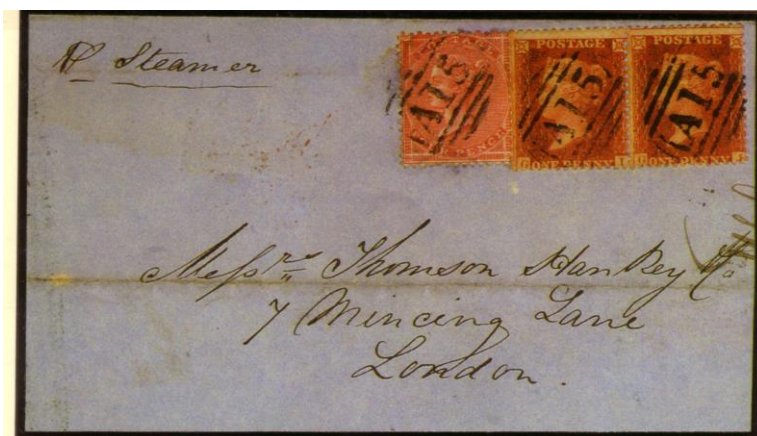 Pr Steamer
A15
PENCE
POSTAGE
A15
ONE PENNY
G I
POSTAGE
A15
ONE PENNY
G J
Messrs Thomson Hankey & Co
7 Mincing Lane
London.